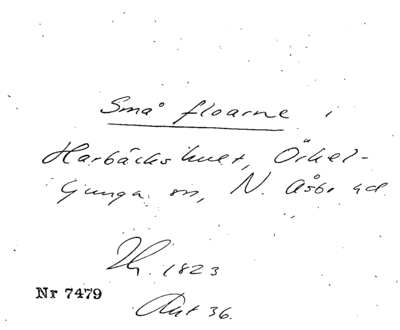 Små floarne i
Harbäckshult, Örkel-
ljunga sn, N. Åsbo hd
1823
Nr 7479
Akt 36.